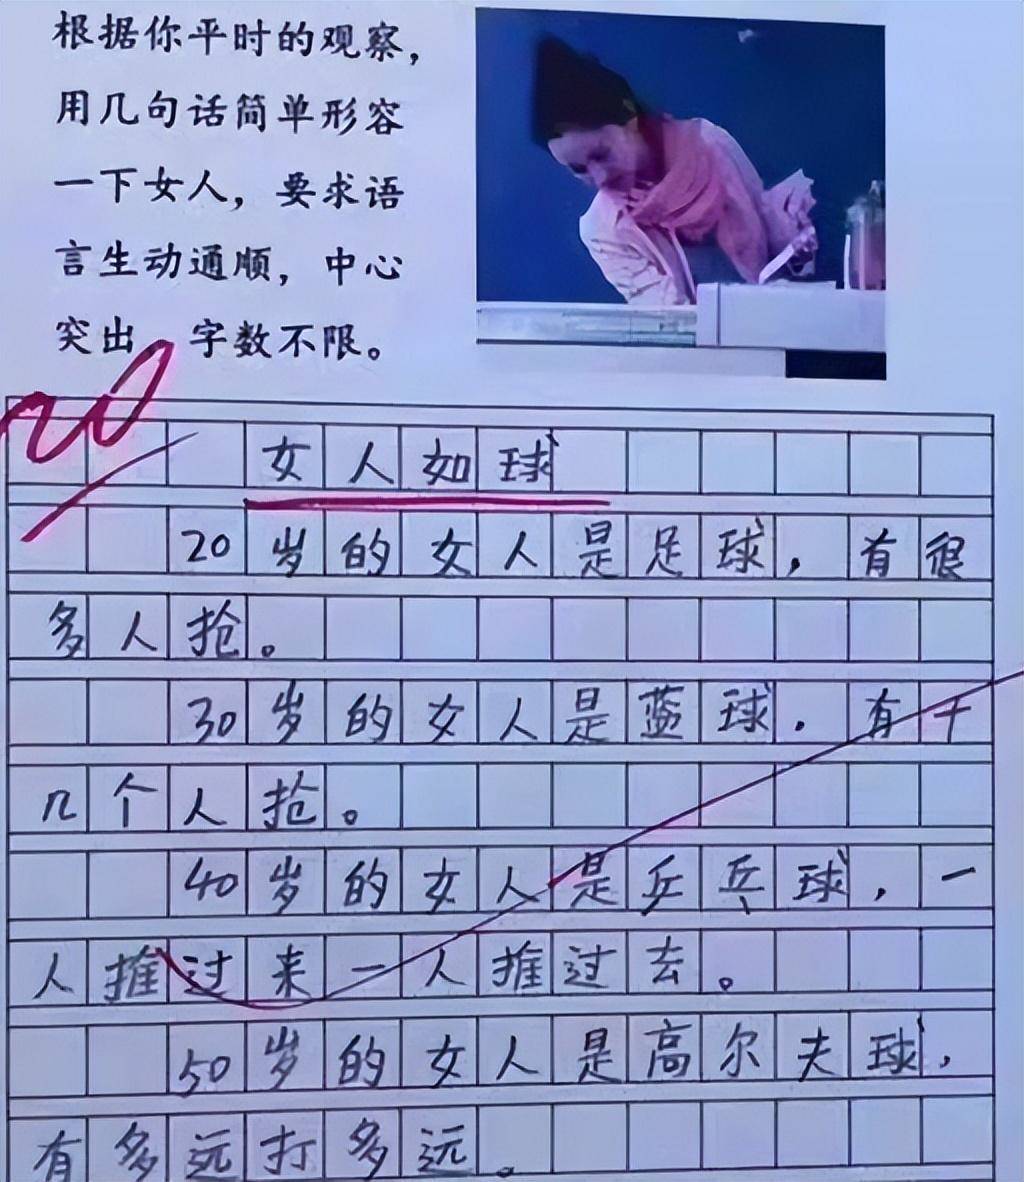 根据你平时的观察，
用几句话简单形容
一下女人，要求语
言生动通顺，中心
突出 字数不限。
20
女人如球
20岁的女人是足球，有很
多人抢。
30岁的女人是蓝球．有十
几个人抢。
40岁的女人是乒乓球，一
人推过来一人推过去。
50岁的女人是高尔夫球，
有多远打多远。